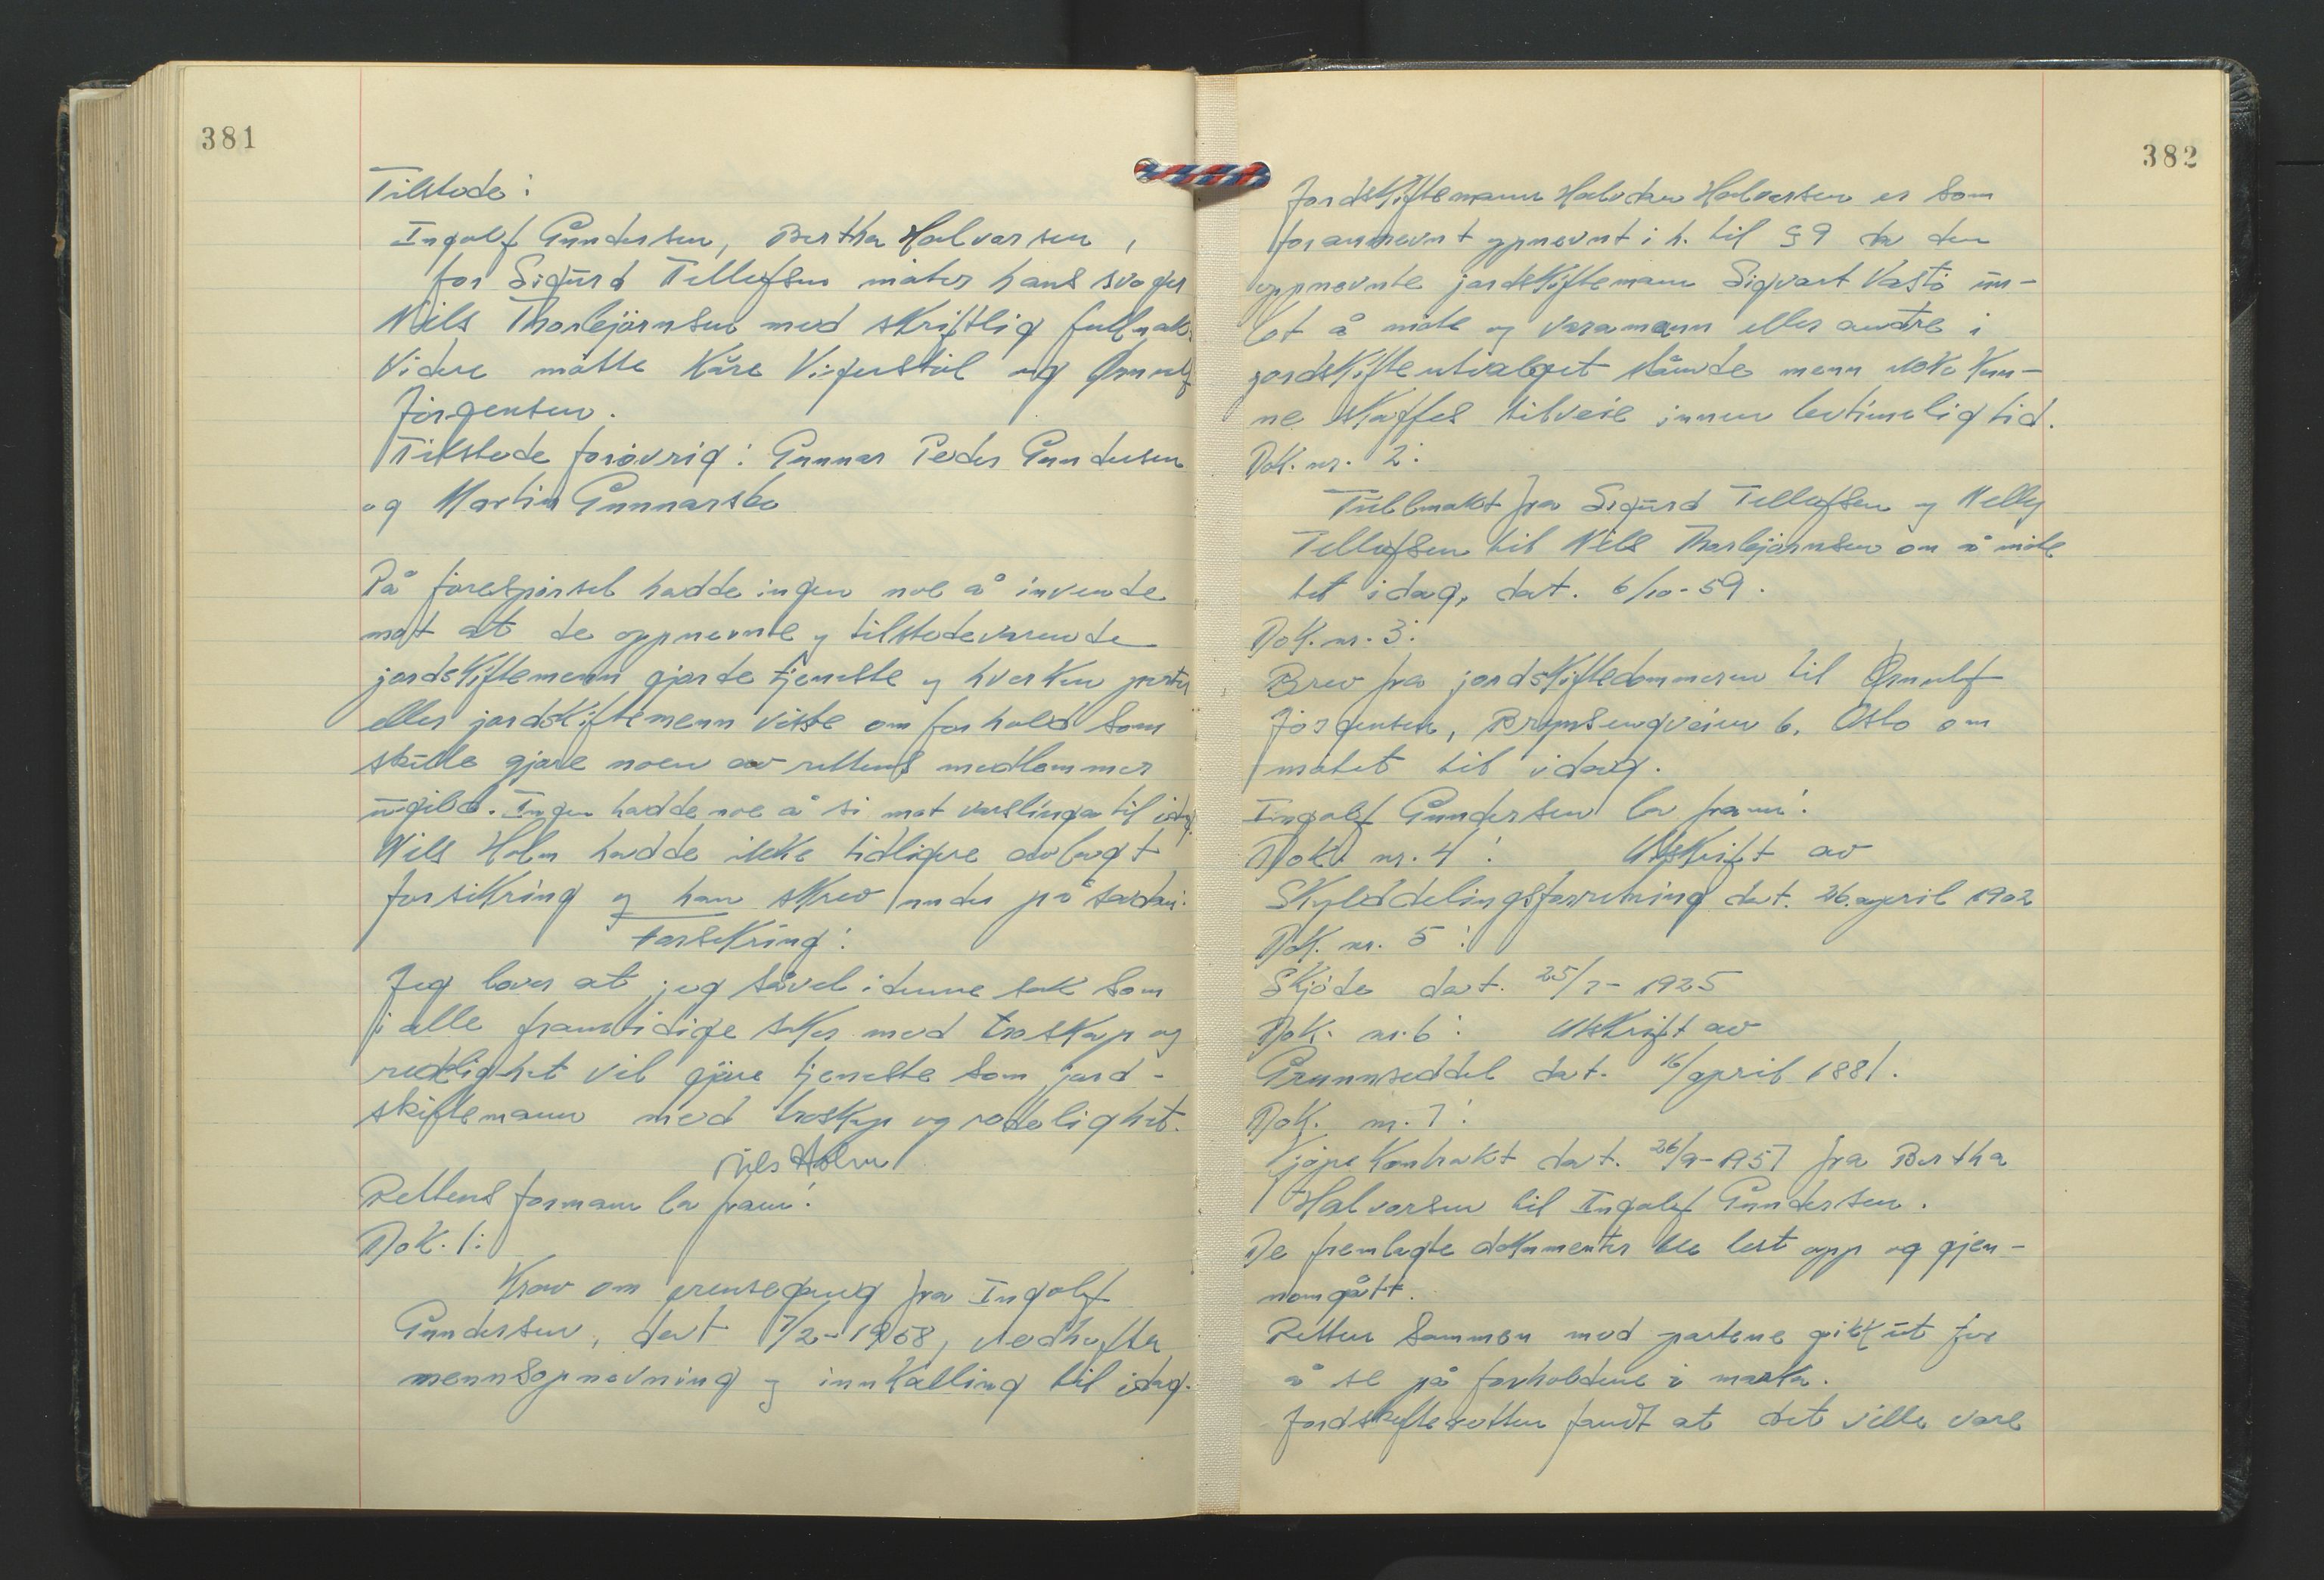 381
Tilstede:
Ingolf Gundersen, Bertha Halvorsen,
for Sigurd Tellefsen møter hans svoger
Nils Thorbjørnsen med skriftlig fullmakt.
Videre møtte Kåre Vigerstøl og Ørnulf
Jörgensen.
Tilstede forøvrig: Gunnar Peder Gundersen
og Martin Gunnarsbo
På forespørsel hadde ingen noe å invende
mot at de oppnevnte og tilstedeværende
jordskiftemenn gjorde tjeneste og hverken parter
eller jordskiftemenn visste om forhold som
skulle gjøre noen av rettens medlemmer
ugild. Ingen hadde noe å si mot varslinga til idag.
Nils Holm hadde ikke tidligere avlagt
forsikring og han skrev under på sådan:
Forsikring:
Jeg lover at jeg såvel i denne sak som
i alle framtidige saker med troskap og
redelighet vil gjøre tjeneste som jord-
skiftemann med troskap og redelighet.
Nils Holm
Rettens formann la fram:
Dok. 1:
Krav om grensegang fra Ingolf
Gundersen, dat 7/2-1958, vedheftet
mennsopnevning og innkalling til idag.
382
Jordskiftemann Halvdan Halvorsen er som
forannevnt opnevnt i h. til § 9 da den
oppnevnte jordskiftemann Sigvart Vastø un-
lot å møte og varamann eller andre i
jordskifteutvalget stående menn ikke kun-
ne skaffes tilveie innen betimelig tid.
Dok. nr. 2:
Fullmakt fra Sigurd Tellefsen og Nelly
Tellefsen til Nils Thorbjørnsen om å møte
til idag, dat. 6/10-59.
Dok. nr. 3:
Brev fra jordskiftedommeren til Ørnulf
Jörgensen, Brynsengveien 6, Oslo om
møtet til idag.
Ingolf Gundersen la fram:
Dok. nr. 4: Utskrift av
Skylddelingsforretning dat. 26. april 1902
Dok. nr. 5:
Skjöde dat. 25/7-1925
Dok. nr. 6: Utskrift av
Grunnseddel dat. 16/april 1881.
Dok. nr. 7:
Kjöpekontrakt dat. 26/9-1957 fra Bertha
Halvorsen til Ingolf Gundersen.
De fremlagte dokumenter ble lest opp og gjen-
nomgått.
Retten sammen med partene gikk ut for
å se på forholdene i marka.
Jordskifteretten fandt at det ville være